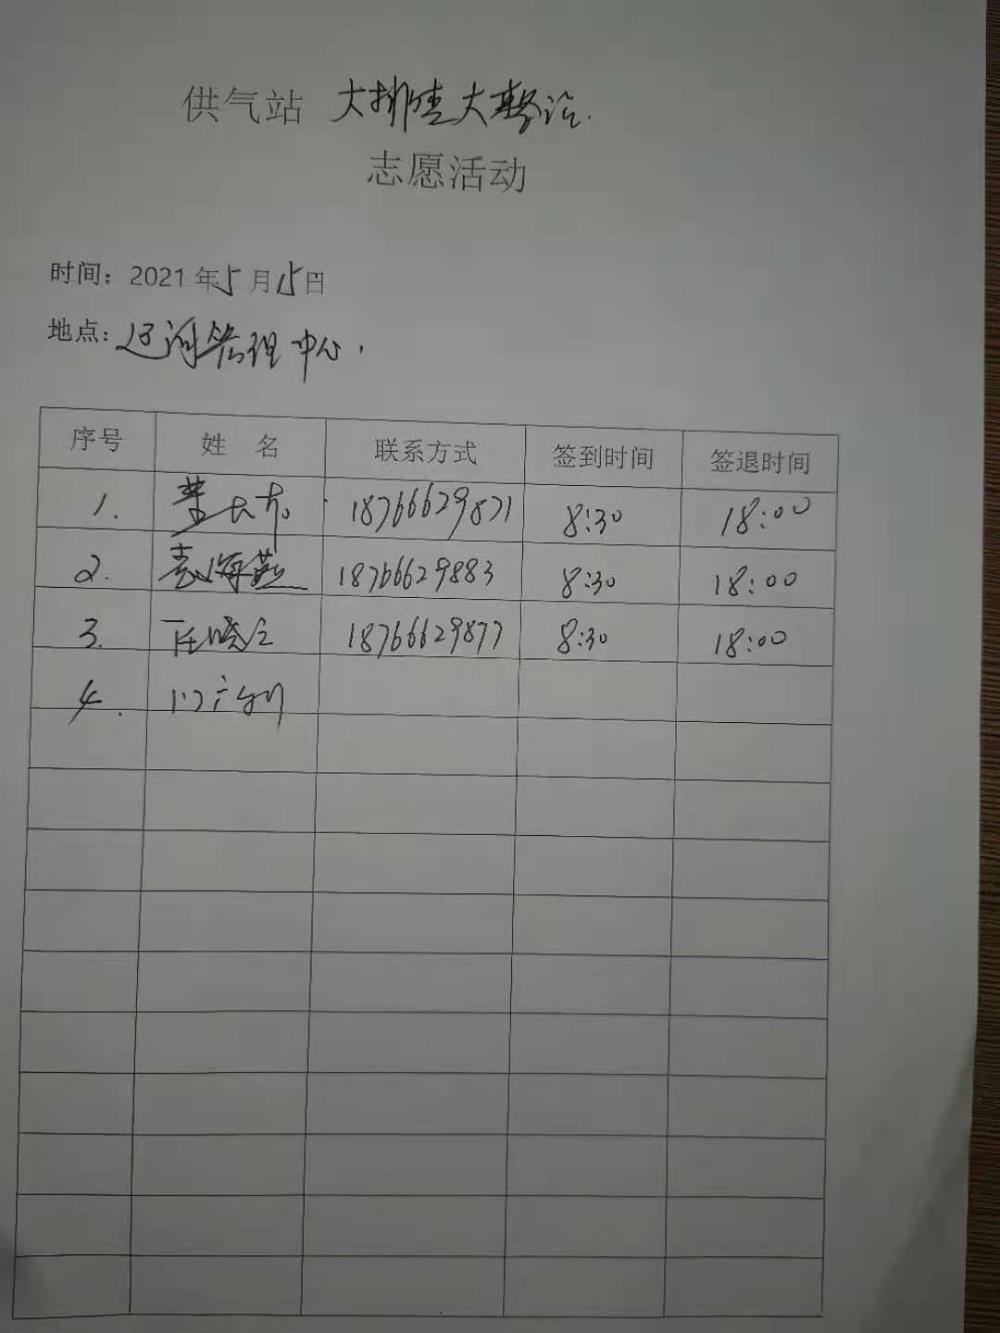 供气站 大排查大整治.
志愿活动
时间：2021年5月15日
地点：运河管理中心.
序号 姓 名 联系方式 签到时间 签退时间
1. 18766629871 8:30 18:00
2. 袁海燕 18766629883 8:30 18:00
3. 任晓 18766629877 8:30 18:00
4.